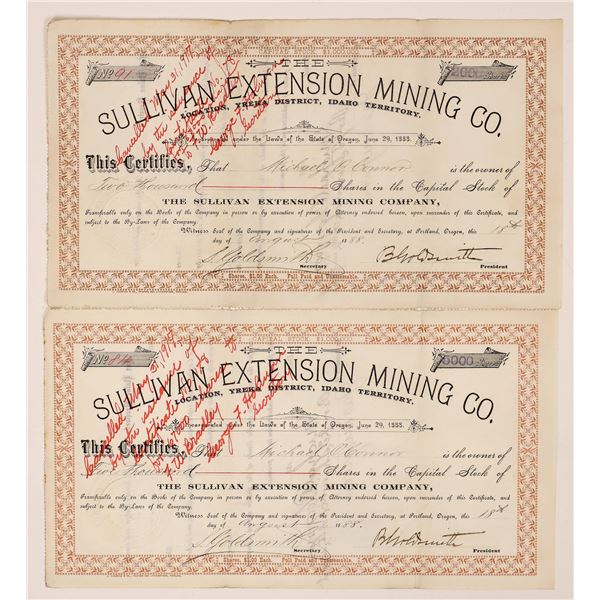 CAPITAL STOCK $1,000,000
No 91
2000 Shares
THE
SULLIVAN EXTENSION MINING CO.
LOCATION, YREKA DISTRICT, IDAHO TERRITORY.
Incorporated under the Laws of the State of Oregon, June 29, 1888.
This Certifies, That Michael O'Connor is the owner of
Two Thousand Shares in the Capital Stock of
THE SULLIVAN EXTENSION MINING COMPANY,
Transferable only on the Books of the Company in person or by execution of power of Attorney endorsed hereon, upon surrender of this Certificate, and
subject to the By-Laws of the Company.
Witness Seal of the Company and signatures of the President and Secretary, at Portland, Oregon, this 18th
day of August 1888.
S. Goldsmith Secretary
B. Goldsmith President
Shares, $1.00 Each. Full Paid and
Cancelled May 31, 1917
by the issuance of
Secretary
No 84
5000 Shares
THE
SULLIVAN EXTENSION MINING CO.
LOCATION, YREKA DISTRICT, IDAHO TERRITORY.
Incorporated under the Laws of the State of Oregon, June 29, 1888.
This Certifies, That Michael O'Connor is the owner of
Thousand Shares in the Capital Stock of
THE SULLIVAN EXTENSION MINING COMPANY,
Transferable only on the Books of the Company in person or by execution of power of Attorney endorsed hereon, upon surrender of this Certificate, and
subject to the By-Laws of the Company.
Witness Seal of the Company and signatures of the President and Secretary, at Portland, Oregon, this 18th
day of August 1888.
S. Goldsmith Secretary
B. Goldsmith President
Shares, $1.00 Each. Full Paid and
Cancelled May 31, 1917
by the issuance of
F. W. Bradley
George F.
Secretary